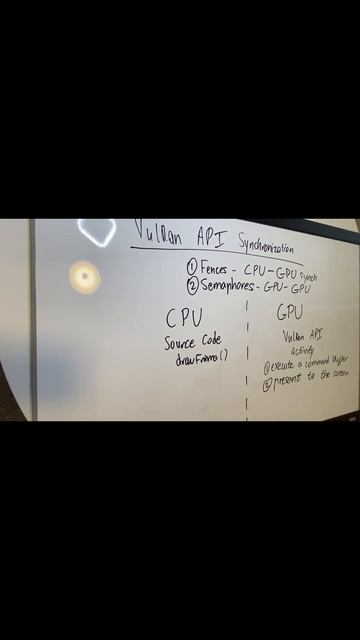 Vulkan API Synchronization
① Fences - CPU-GPU Synch
② Semaphores - GPU-GPU
CPU
Source Code
drawFrame()
GPU
Vulkan API
activity
① execute a command buffer
② present to the screen